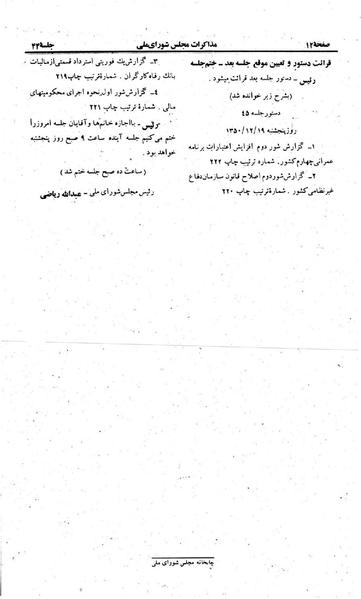 صفحهٔ ۱۲
مذاکرات مجلس شورای ملی
جلسهٔ ۴۴
قرائت دستور و تعیین موقع جلسه بعد ـ ختم جلسه
رئیس ـ دستور جلسه بعد قرائت میشود.
(بشرح زیر خوانده شد)
دستور جلسه ۴۵
روز پنجشنبه ۱۳۵۰/۱۲/۱۹
۱ـ گزارش شور دوم افزایش اعتبارات برنامه
عمرانی چهارم کشور. شماره ترتیب چاپ ۲۲۲
۲ـ گزارش شور دوم اصلاح قانون سازمان دفاع
غیرنظامی کشور. شمارهٔ ترتیب چاپ ۲۲۰
۳ـ گزارش یک فوریتی استرداد قسمتی از مالیات
بانک رفاه کارگران. شمارهٔ ترتیب چاپ ۲۱۹
۴ـ گزارش شور اول نحوه اجرای محکومیتهای
مالی. شمارهٔ ترتیب چاپ ۲۲۱
رئیس ـ با اجازه خانمها و آقایان جلسه امروز را
ختم می‌کنیم جلسه آینده ساعت ۹ صبح روز پنجشنبه
خواهد بود.
(ساعت ده صبح جلسه ختم شد)
رئیس مجلس شورای ملی ـ عبدالله ریاضی
چاپخانه مجلس شورای ملی